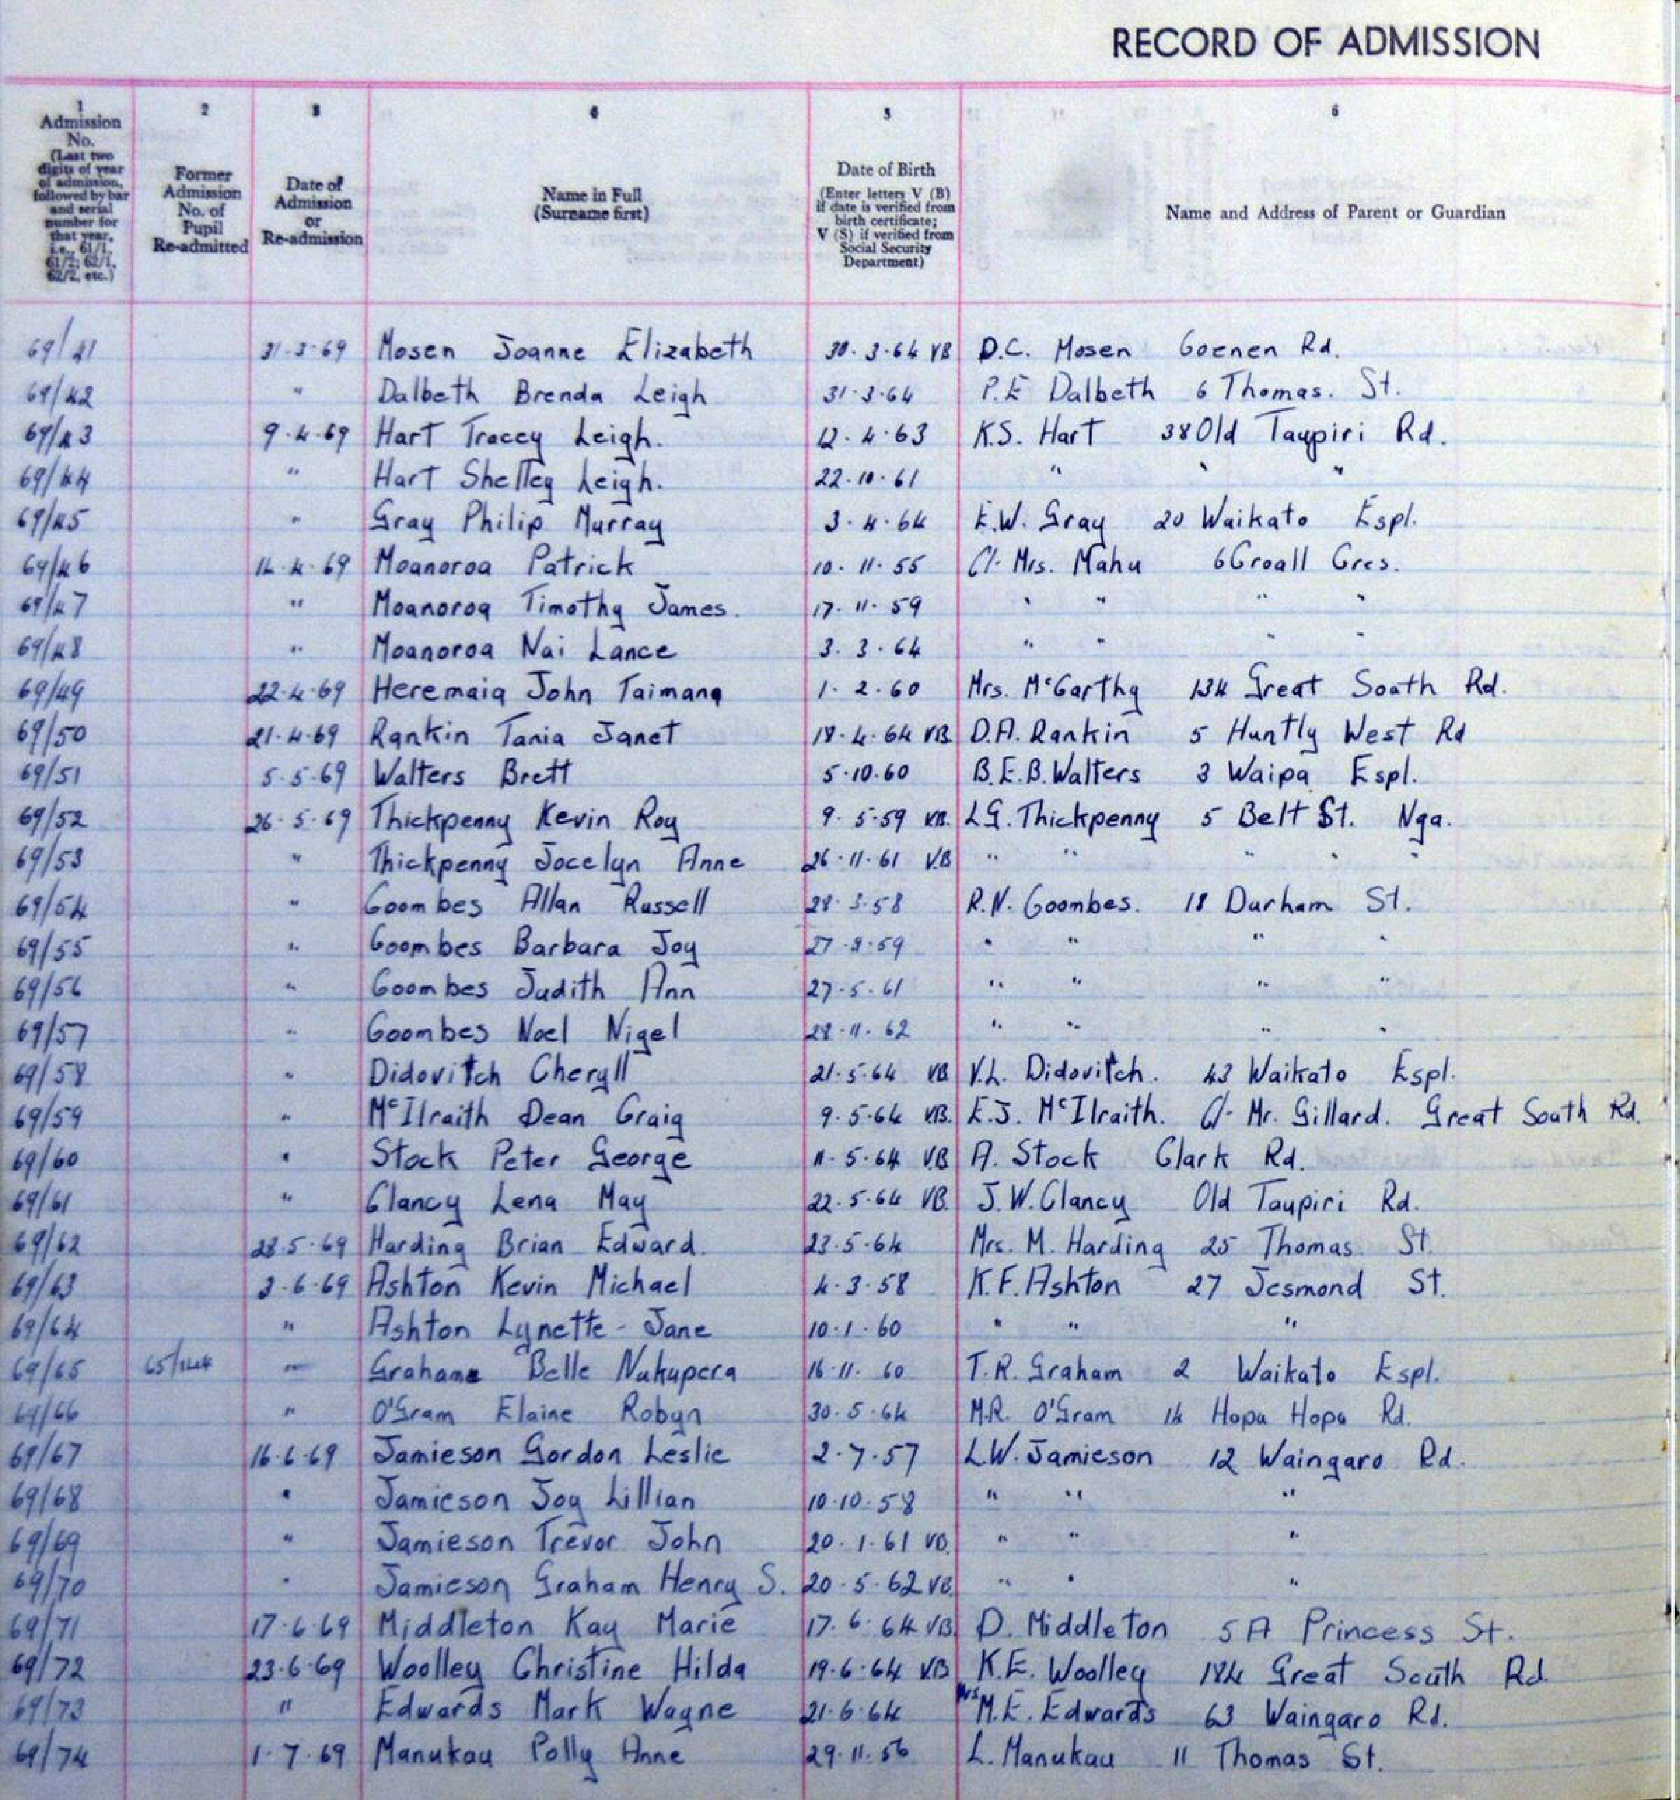 RECORD OF ADMISSION
1 2 3 4 5 6
Admission No. (Last two digits of year of admission, followed by bar and serial number for that year, i.e., 61/1, 61/2; 62/1, 62/2, etc.)
Former Admission No. of Pupil Re-admitted
Date of Admission or Re-admission
Name in Full (Surname first)
Date of Birth (Enter letters V (B) if date is verified from birth certificate; V (S) if verified from Social Security Department)
Name and Address of Parent or Guardian
69/41 31-3-69 Mosen Joanne Elizabeth 30.3.64 VB D.C. Mosen Goenen Rd.
69/42 " Dalbeth Brenda Leigh 31.3.64 P.E Dalbeth 6 Thomas. St.
69/43 9.4.69 Hart Tracey Leigh. 12.4.63 K.S. Hart 38 Old Taupiri Rd.
69/44 " Hart Shelley Leigh. 22.10.61 " " "
69/45 " Gray Philip Murray 3.4.64 E.W. Gray 20 Waikato Espl.
69/46 14.4.69 Moanoroa Patrick 10.11.55 C/- Mrs. Mahu 6 Croall Cres.
69/47 " Moanoroa Timothy James. 17.11.59 " " " "
69/48 " Moanoroa Nai Lance 3.3.64 " " " "
69/49 22.4.69 Heremaia John Taimana 1.2.60 Mrs. McCarthy 134 Great South Rd.
69/50 21.4.69 Rankin Tania Janet 18.4.64 VB D.A. Rankin 5 Huntly West Rd
69/51 5.5.69 Walters Brett 5.10.60 B.E.B. Walters 3 Waipa Espl.
69/52 26.5.69 Thickpenny Kevin Roy 9.5.59 VB. L.G. Thickpenny 5 Belt St. Nga.
69/53 " Thickpenny Jocelyn Anne 26.11.61 VB " " " " "
69/54 " Coombes Allan Russell 28.3.58 R.N. Coombes. 18 Durham St.
69/55 " Coombes Barbara Joy 27.8.59 " " " "
69/56 " Coombes Judith Ann 27.5.61 " " " "
69/57 " Coombes Noel Nigel 28.11.62 " " " "
69/58 " Didovitch Cheryll 21.5.64 VB V.L. Didovitch. 43 Waikato Espl.
69/59 " McIlraith Dean Craig 9.5.64 VB. E.J. McIlraith. C/- Mr. Gillard. Great South Rd.
69/60 " Stock Peter George 11.5.64 VB A. Stock Clark Rd.
69/61 " Clancy Lena May 22.5.64 VB. J.W. Clancy Old Taupiri Rd.
69/62 28.5.69 Harding Brian Edward. 23.5.64 Mrs. M. Harding 25 Thomas St.
69/63 3.6.69 Ashton Kevin Michael 4.3.58 K.F. Ashton 27 Jesmond St.
69/64 " Ashton Lynette-Jane 10.1.60 " " "
69/65 65/144 " Grahame Belle Nukupera 16.11.60 T.R. Graham 2 Waikato Espl.
69/66 " O'Gram Elaine Robyn 30.5.64 M.R. O'Gram 14 Hopu Hopu Rd.
69/67 16.6.69 Jamieson Gordon Leslie 2.7.57 L.W. Jamieson 12 Waingaro Rd.
69/68 " Jamieson Joy Lillian 10.10.58 " " "
69/69 " Jamieson Trevor John 20.1.61 VB. " " "
69/70 " Jamieson Graham Henry S. 20.5.62 VB. " " "
69/71 17.6.69 Middleton Kay Marie 17.6.64 VB. D. Middleton 5A Princess St.
69/72 23.6.69 Woolley Christine Hilda 19.6.64 VB K.E. Woolley 184 Great South Rd
69/73 " Edwards Mark Wayne 21.6.64 Mrs M.E. Edwards 63 Waingaro Rd.
69/74 1.7.69 Manukau Polly Anne 29.11.56 L. Manukau 11 Thomas St.